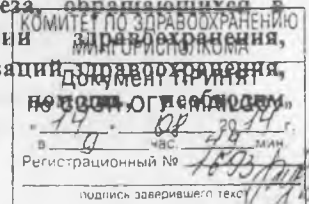 еза, обращающихся в
КОМИТЕТ ПО ЗДРАВООХРАНЕНИЮ
ии здравоохранения,
МИНГОРИСПОЛКОМА
заций здравоохранения,
Документ ПРИНЯТ
по
"14" 08 2014 г.
в 9 час. мин.
Регистрационный № 1693
подпись заверившего текс